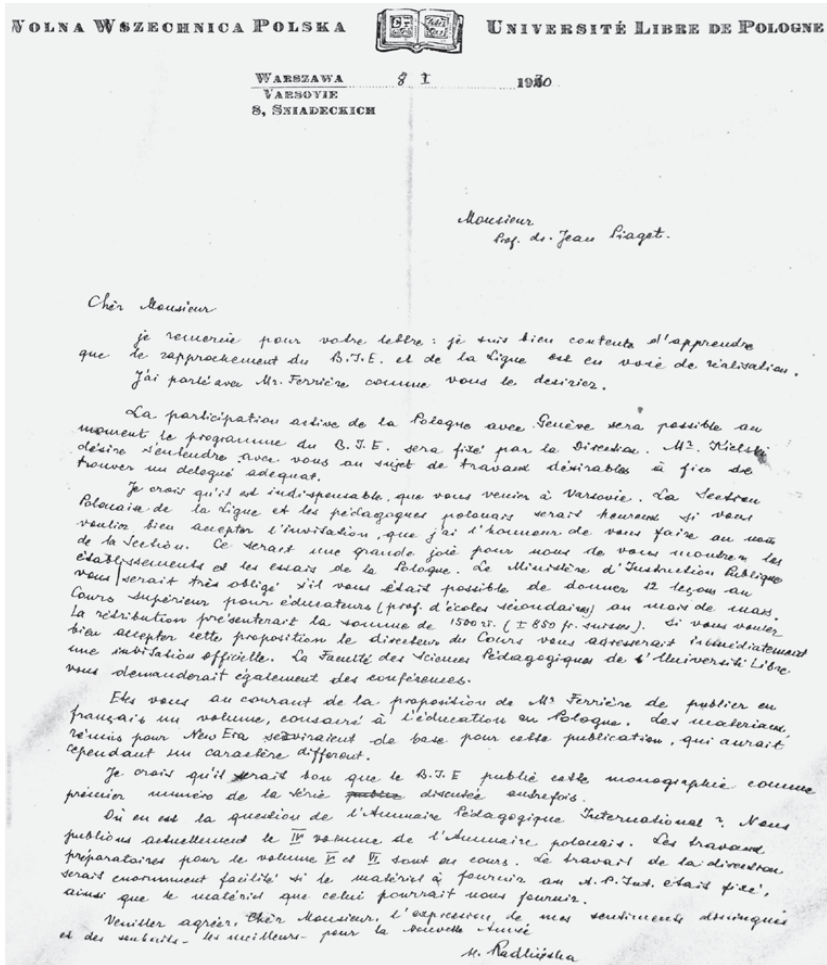 WOLNA WSZECHNICA POLSKA
UNIVERSITÉ LIBRE DE POLOGNE
WARSZAWA 8 I 1930
VARSOVIE
8, SNIADECKICH
Monsieur
Prof. dr. Jean Piaget.
Chèr Monsieur
je remercie pour votre lettre : je suis bien contente d'apprendre
que le rapprochement du B.I.E. et de la Ligue est en voie de réalisation.
J'ai parlé avec Mr. Ferrière comme vous le desiriez.
La participation active de la Pologne avec Genève sera possible au
moment le programme du B.I.E. sera fixé par la Direction. Mr. Kielski
désire s'entendre avec vous au sujet de travaux désirables à fin de
trouver un delegué adequat.
Je crois qu'il est indispensable, que vous veniez à Varsovie. La Section
Polonaise de la Ligue et les pédagogues polonais serait heureux si vous
vouliez bien accepter l'invitation, que j'ai l'honneur de vous faire au nom
de la Section. Ce serait une grande joie pour nous de vous montrer les
établissements et les essais de la Pologne. Le Ministère d'Instruction Publique
vous serait très obligé s'il vous était possible de donner 12 leçons au
Cours Supérieur pour éducateurs (prof. d'écoles sécondaires) au mois de mars.
La rétribution présenterait la somme de 1500 zł. (± 850 fr. suisses). Si vous voulez
bien accepter cette proposition le directeur du Cours vous adresserait immédiatement
une invitation officielle. La Faculté des Sciences Pédagogiques de l'Université Libre
vous demanderait également des conférences.
Etes vous au courant de la proposition de Mr Ferrière de publier en
français un volume, consacré à l'éducation en Pologne. Les materiaux,
réunis pour New Era serviraient de base pour cette publication, qui aurait
cependant un caractère different.
Je crois qu'il serait bon que le B.I.E publie cette monographie comme
prémier numéro de la série discutée autrefois.
Où en est la question de l'Annuaire Pédagogique International ? Nous
publions actuellement le IV volume de l'Annuaire polonais. Les travaux
préparatoires pour le volume V et VI sont en cours. Le travail de la direction
serait enormement facilité si le matériel à fournir au A.P.Int. était fixé,
ainsi que le matériel que celui pourrait nous fournir.
Veuillez agréer, Chèr Monsieur, l'expression de mes sentiments distingués
et des souhaits - les meilleurs - pour la Nouvelle Année
H. Radlińska